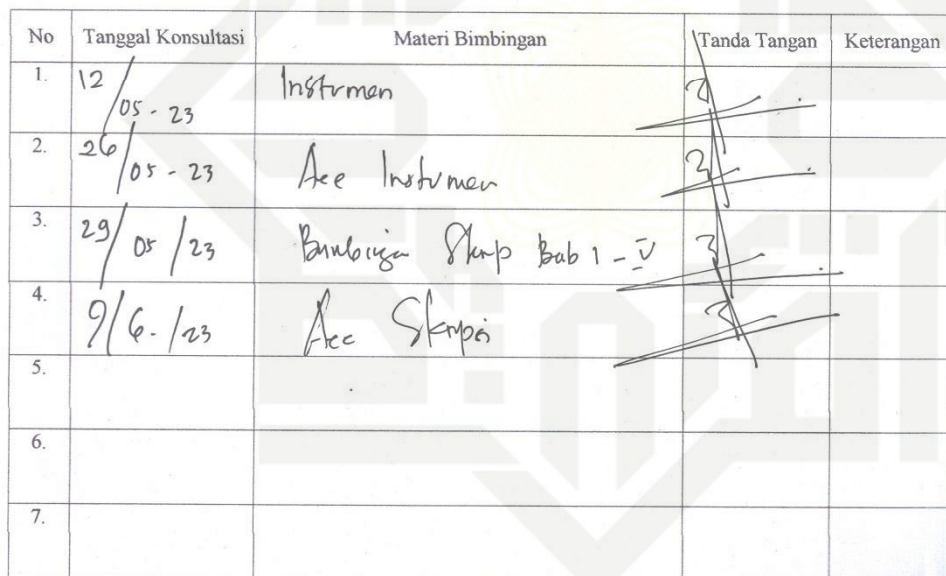 No Tanggal Konsultasi Materi Bimbingan Tanda Tangan Keterangan
1. 12/05-23 Instrmen
2. 26/05-23 Acc Instrumen
3. 29/05/23 Bimbingan Skrip Bab 1-V
4. 9/6-/23 Acc Skripsi
5.
6.
7.